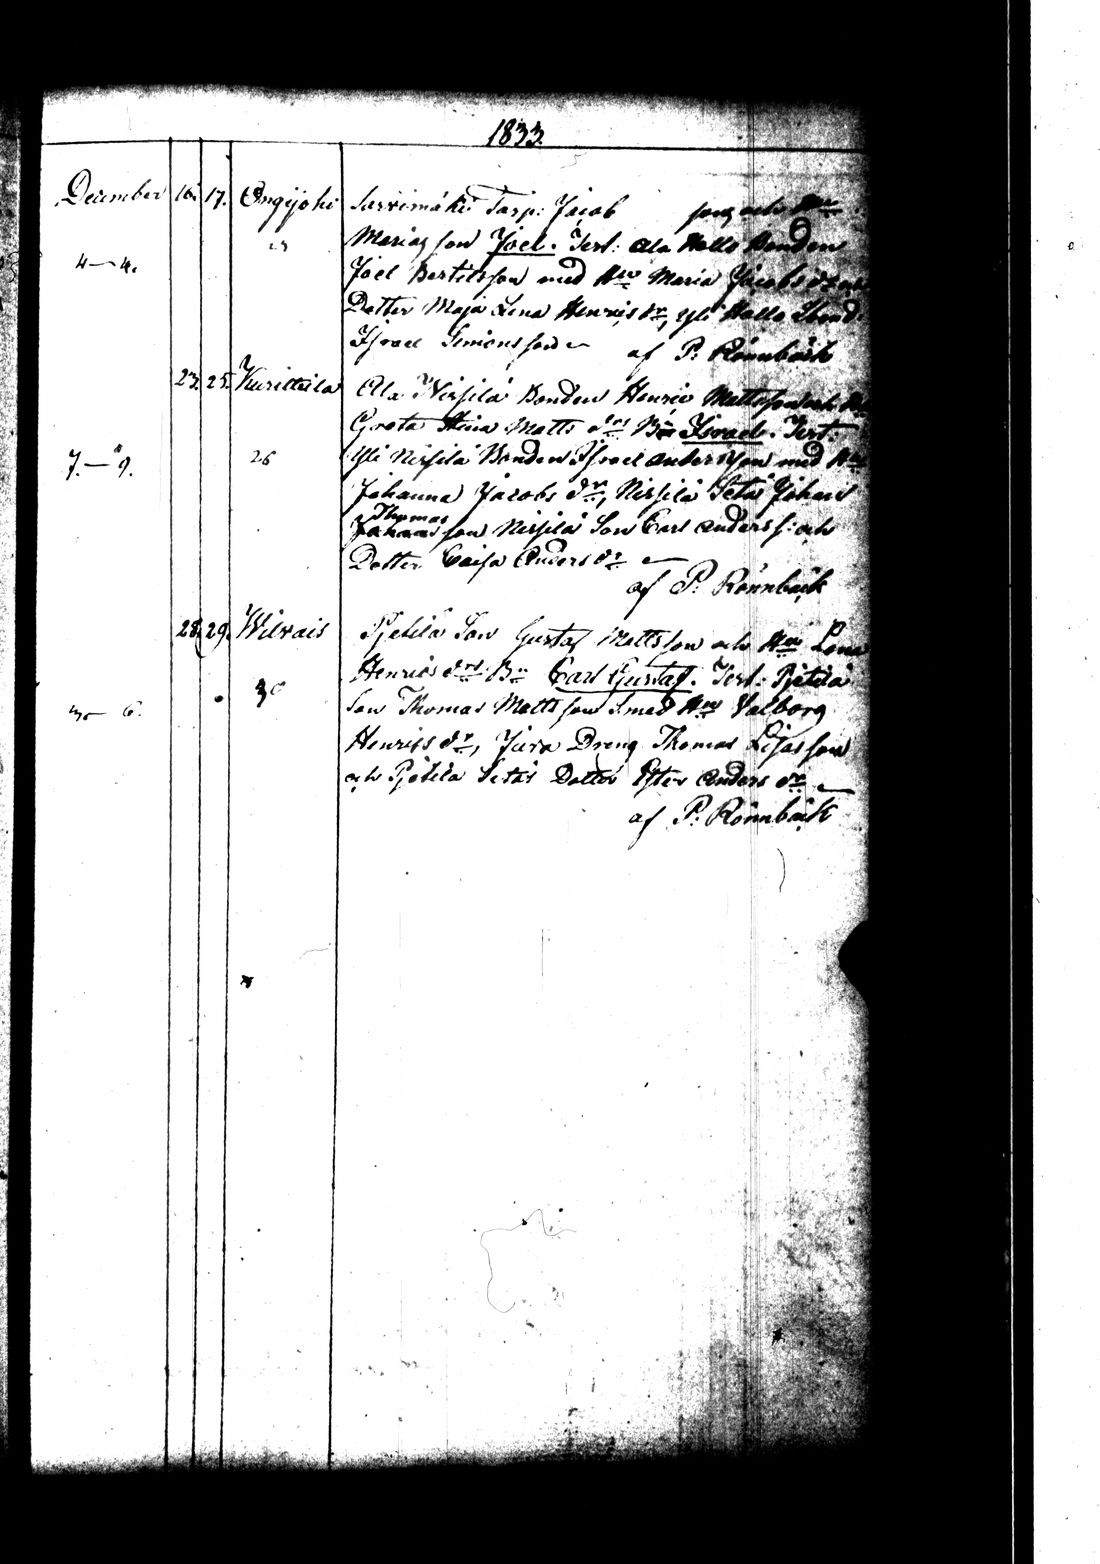 1833.
December 16. 17. Ongijoki Sarrimäki Torp: Jacob son och Hu
Marias son Joel. Test: Ala Hallo Bonden
4—4. Joel Bertilsson med Hu Maria Jacobs dr
Dotter Maja Lena Henrics dr, Yli Hallo Bond.
Israel Simonsson
af P: Rönnbäck
23. 25. Kurittula Ala Nirsilä Bonden Henric Mattsson och Hu
Greta Stina Matts drs Bn Israel. Test:
7.—9. 26 Yli Nirsilä Bonden Israel Andersson med Hu
Johanna Jacobs dr, Nirsilä Johan
Thomas
son Nirsilä Son Carl Anders s: och
Dotter Caisa Anders dr
af P: Rönnbäck
28. 29. Wilvais Pietilä Son Gustaf Mattsson och Hu Lena
Henrics drs Bn Carl Gustaf. Test: Pjetilä
30 6. Son Thomas Mattsson med Hu Valborg
Henrics dr, Dreng Thomas
och Pjetilä Dotter Anders dr
af P: Rönnbäck